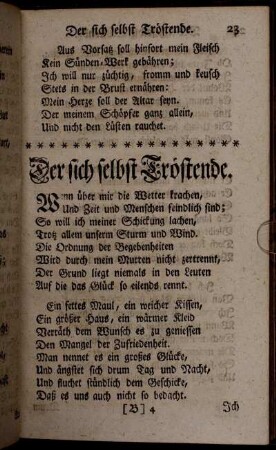 Der sich selbst Tröstende. 23
Aus Vorsatz soll hinfort mein Fleisch
Kein Sünden-Werk gebähren;
Ich will nur züchtig, fromm und keusch
Stets in der Brust ernähren:
Mein Herze soll der Altar seyn.
Der meinem Schöpfer ganz allein,
Und nicht den Lüsten rauchet.
Der sich selbst Tröstende.
Wenn über mir die Wetter krachen,
Und Zeit und Menschen feindlich sind;
So will ich meiner Schickung lachen,
Trotz allem unserm Sturm und Wind.
Die Ordnung der Begebenheiten
Wird durch mein Murren nicht zertrennt,
Der Grund liegt niemals in den Leuten
Auf die das Glück so eilends rennt.
Ein fettes Maul, ein weicher Kissen,
Ein größer Haus, ein wärmer Kleid
Verräth dem Wunsch es zu geniessen
Den Mangel der Zufriedenheit.
Man nennet es ein großes Glücke,
Und ängstet sich drum Tag und Nacht,
Und fluchet stündlich dem Geschicke,
Daß es uns auch nicht so bedacht.
[B] 4 Ich